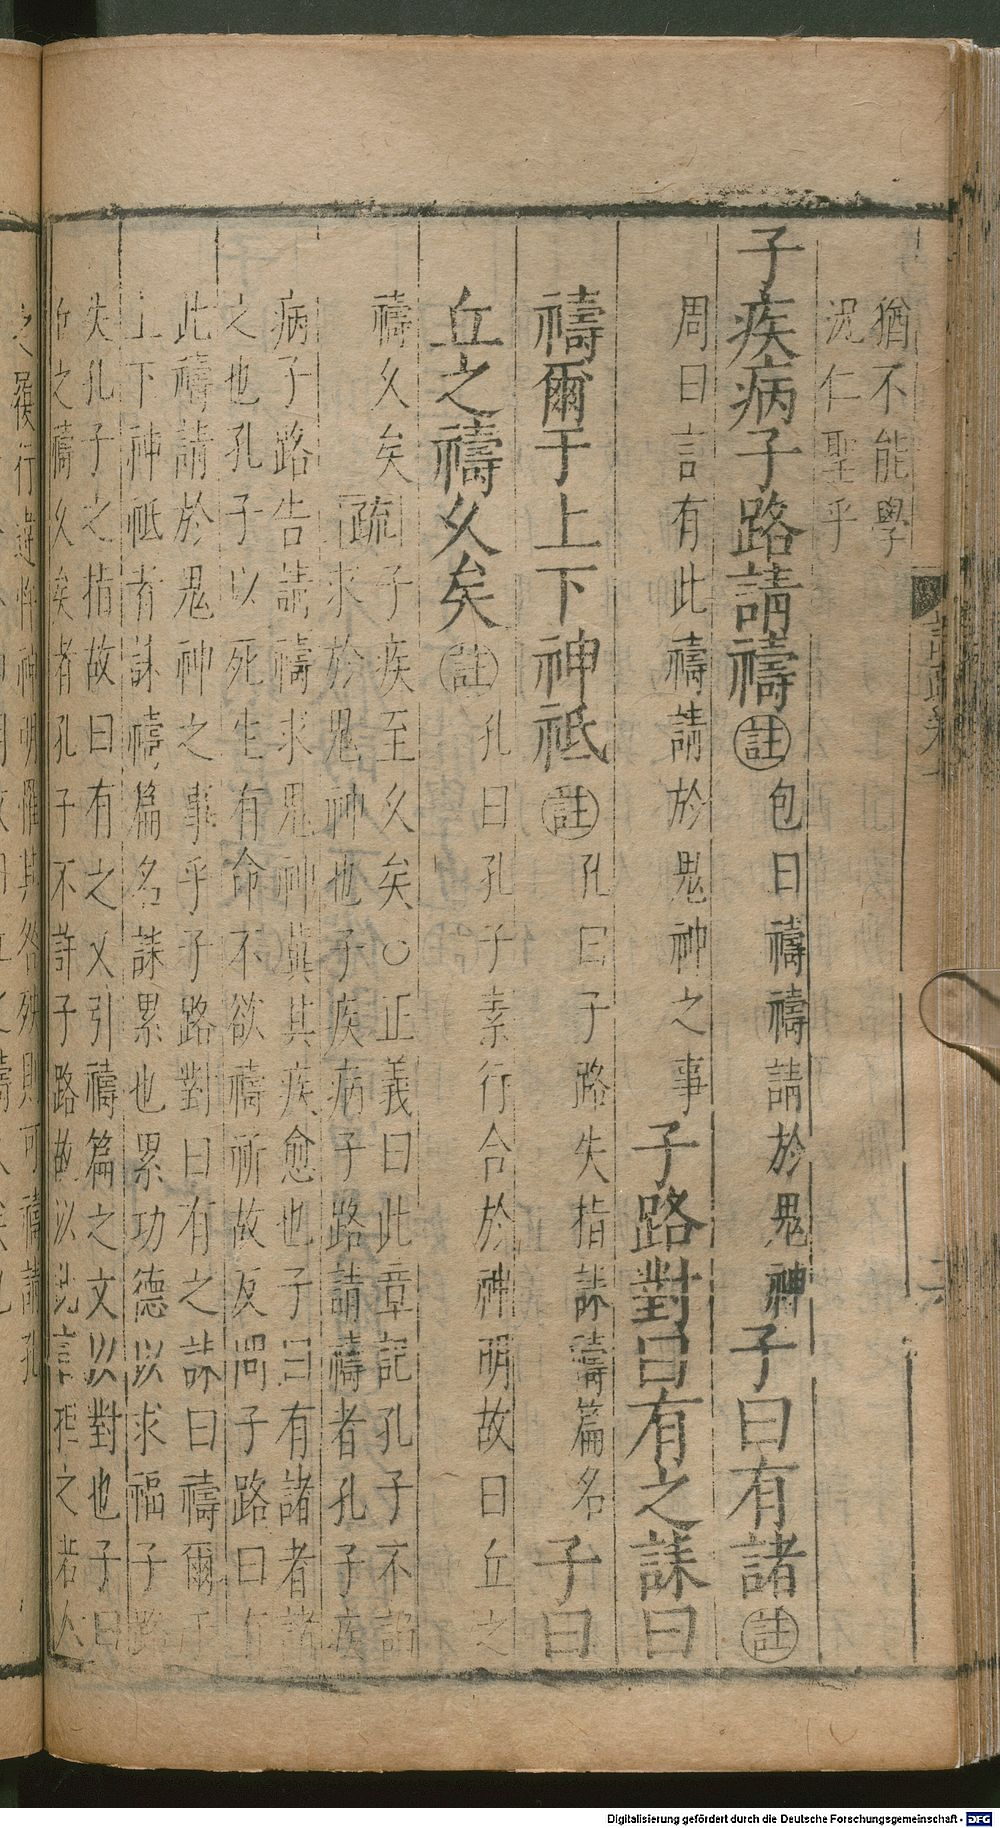 猶不能學
況仁聖乎
子疾病子路請禱註包曰禱禱請於鬼神子曰有諸註
周曰言有此禱請於鬼神之事子路對曰有之誄曰
禱爾于上下神祗註孔曰子路失指誄禱篇名子曰
丘之禱久矣註孔曰孔子素行合於神明故曰丘之
禱久矣疏子疾至久矣○正義曰此章記孔子不諂
求於鬼神也子疾病子路請禱者孔子疾
病子路告請禱求鬼神冀其疾愈也子曰有諸者諸
之也孔子以死生有命不欲禱祈故反問子路曰有
此禱請於鬼神之事乎子路對曰有之誄曰禱爾于
上下神祗者誄禱篇名誄累也累功德以求福子路
失孔子之指故曰有之又引禱篇之文以對也子曰
丘之禱久矣者孔子不許子路故以此言拒之若人
之履行違忤神明罹其咎殃則可禱請孔
Digitalisierung gefördert durch die Deutsche Forschungsgemeinschaft - DFG